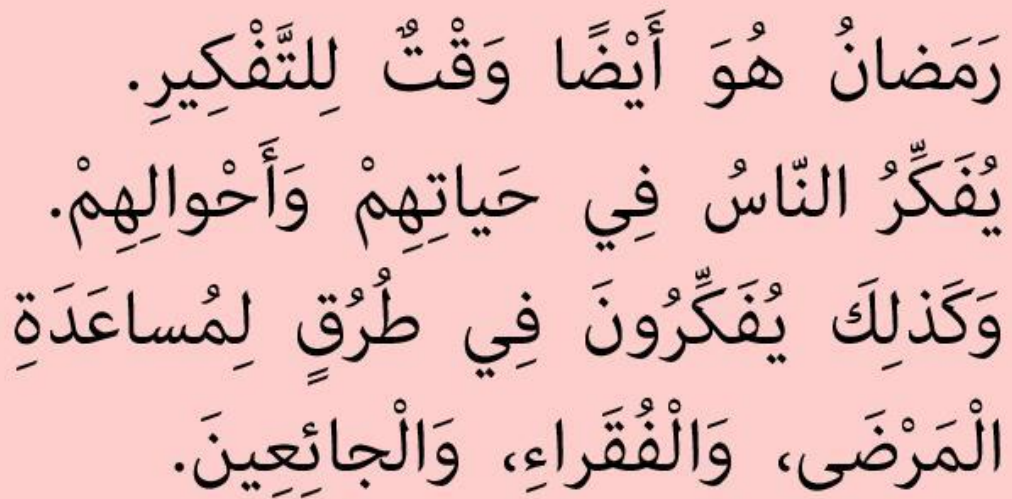 رَمَضانُ هُوَ أَيْضًا وَقْتٌ لِلتَّفْكِيرِ.
يُفَكِّرُ النّاسُ فِي حَياتِهِمْ وَأَحْوالِهِمْ.
وَكَذلِكَ يُفَكِّرُونَ فِي طُرُقٍ لِمُساعَدَةِ
الْمَرْضَى، وَالْفُقَراءِ، وَالْجائِعِينَ.